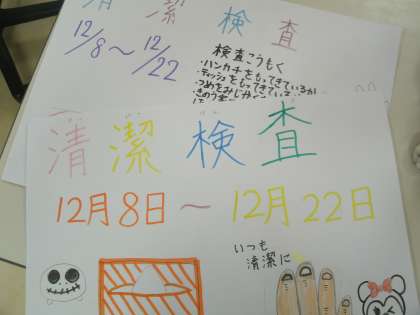 清潔 検査
12/8～12/22
検査こうもく
・ハンカチをもってきているか
・ティッシュをもってきているか
・つめをみじか
・きのう
清潔検査
12月8日～12月22日
いつも
清潔に